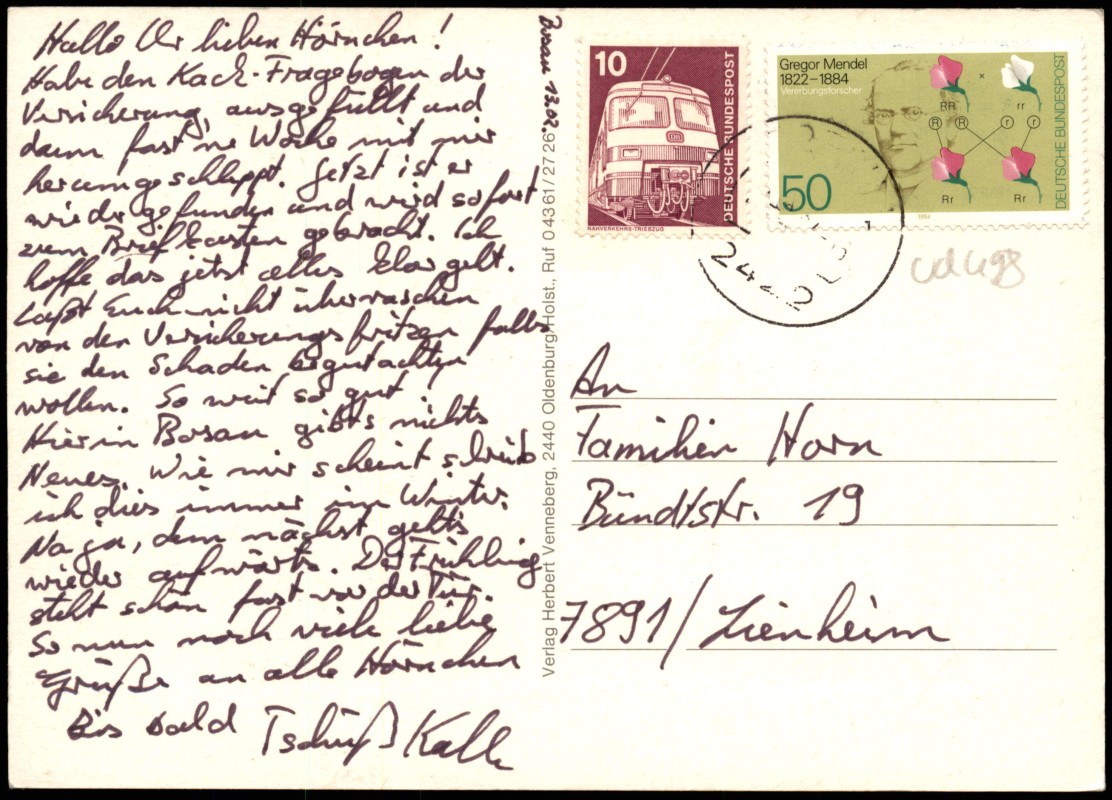 Hallo Ihr lieben Hörnchen!
Habe den Kack-Fragebogen der
Versicherung, ausgefüllt und
dann fast ne Woche mit mir
herumgeschleppt. Jetzt ist er
wiedergefunden und wird sofort
zum Briefkasten gebracht. Ich
hoffe das jetzt alles klar geht.
Laßt Euch nicht überraschen
von den Versicherungsfritzen falls
sie den Schaden begutachten
wollen. So weit so gut
Hier in Bosau gibts nichts
Neues. Wie mir scheint schreib
ich dies immer im Winter.
Na ja, demnächst gehts
wieder aufwärts. Der Frühling
steht schon fast vor der Tür.
So nun noch viele liebe
Grüße an alle Hörnchen
Bis bald Tschüß Kalle
Bosau 13.02.
Verlag Herbert Venneberg, 2440 Oldenburg/Holst., Ruf 04361/27 26
10
DEUTSCHE BUNDESPOST
NAHVERKEHRS-TRIEBZUG
Gregor Mendel
1822–1884
Vererbungsforscher
×
RR rr
R R r r
Rr Rr
50
1984
DEUTSCHE BUNDESPOST
242
An
Familien Horn
Bündtstr. 19
7891/Lienheim